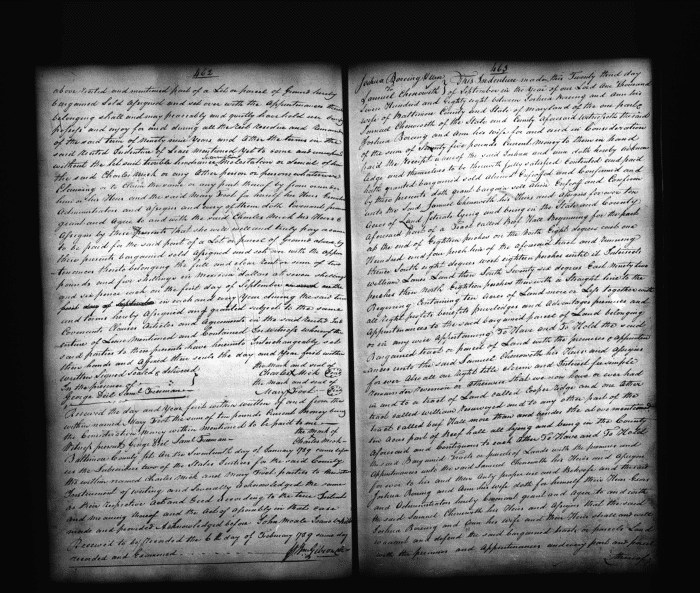 462
above recited and mentioned part of a Lot or parcel of Ground hereby
bargained Sold Assigned and set over with the Appurtenances thereto
belonging shall and may peaceably and quietly have hold use occupy
possess and enjoy for and during all the rest Residue and Remainder
of the said term of Ninety nine Years and after the terms in the
said recited Indenture of Lease Mentioned Yet to come and unexpired
without the let suit trouble hindrance molestation or denial of him
the said Charles Mick or any other person or persons whatsoever
Claiming or to Claim the same or any part thereof by from or under
him or his Heirs and the said Mary Frost for herself her Heirs Executors
Administrators and Assigns and every of them doth Covenant promise
grant and Agree to and with the said Charles Mick his Heirs &
Assigns by these Presents that she will well and truly pay or cause
to be paid for the said part of a Lot or parcel of Ground above by
these presents bargained sold Assigned and set over with the appur
tenances thereto belonging the full and clear Rent or sum of two
pounds and five Shillings in Mexico dollars at seven shillings
and six pence each on the first day of September
in each and every Year during the said term
and terms hereby Assigned and granted subject to the same
Covenants Causes Articles and Agreements in the said recited Inden
denture of Lease Mentioned and Contained In Witness whereof the
said parties to these presents have hereunto Interchangeably set
their hands and affixed their seals the day and Year first within
written
Signed Sealed & delivered
in the presence of
George Gist Saml Freeman
the Mark and seal of
Charles Mick
the mark and seal of
Mary Frost
Received the day and Year first within written of and from the
within named Mary Frost the sum of ten pounds Current Money being
the Consideration Money within Mentioned to be paid to me
Witness present George Gist Saml Freeman
the Mark of
Charles Mick
Baltimore County sct. On the Seventeenth day of January 1789 came before
us the Subscribers two of the States Justices for the said County
the within named Charles Mick and Mary Frost parties to the within
Instrument of writing and severally Acknowledged the same
as their respective Act and Deed According to the true Intent
and meaning thereof and the Act of Assembly in that case
made and provided Acknowledged before John Moale
Received to be Recorded the 6th day of February 1789 same day
recorded and Examined
463
Joshua Bossing & Uxor
To
Samuel Chenoweth
This Indenture made this Twenty third day
of September in the Year of our Lord One Thousand
Seven Hundred and Eighty eight between Joshua Bossing and Ann his
wife of Baltimore County and State of Maryland of the one part &
Samuel Chenoweth of the State and County aforesaid Witnesseth the said
Joshua Bossing and Ann his wife for and in Consideration
of the sum of twenty five pounds Current Money to them in hand
paid the Receipt whereof the said Joshua and Ann doth hereby acknow
ledge and themselves to be therewith fully satisfied Contented and paid
hath granted bargained sold aliened Enfeoffed and Confirmed and
by these presents doth grant bargain sell alien Enfeoff and Confirm
unto the said Samuel Chenoweth his Heirs and Assigns for ever ten
Acres of Land lying and being in the State and County
aforesaid part of a Tract called Beginning for the part
at the end of Eighteen perches on the North Eight degrees East one
Hundred and four perch line of the aforesaid tract and running
thence South eight degrees west eighteen perches until it Intersects
William Land then South Seventy six degrees East Ninety two
perches then North Eighteen perches then with a Straight line to the
Beginning Containing ten Acres of Land more or Less Together with
all right profits benefits priviledges and Advantages premises and
Appurtenances to the said bargained parcel of Land belonging
or in any wise appertaining To Have and To Hold the said
Bargained tract or parcel of Land with the premises & Appurten
ances unto the said Samuel Chenoweth his Heirs and Assigns
for ever Also all our right title Claim and Interest Reversion
Remainder Reversion or otherwise that we now have or ever had
in and to a tract of Land called and one other
tract called William Resurveyed and to any other part of the
tract called more than and besides the above mentioned
ten Acres part of all lying and being in the County
aforesaid and Contiguous to each other To Have and To Hold
the said Bargained Tracts or parcels of Lands with the premises and
Appurtenances unto the said Samuel Chenoweth his Heirs and Assigns
for ever to his and their Only proper use and Behoof and the said
Joshua Bossing and Ann his wife doth for himself their Heirs
and Administrators hereby Covenant grant and agree to and with
the said Samuel Chenoweth his Heirs and Assigns that the said
Joshua Bossing and Ann his wife and their Heirs shall and will
warrant and defend the said bargained tract or parcels Land
with the premises and Appurtenances and every part and parcel
thereof